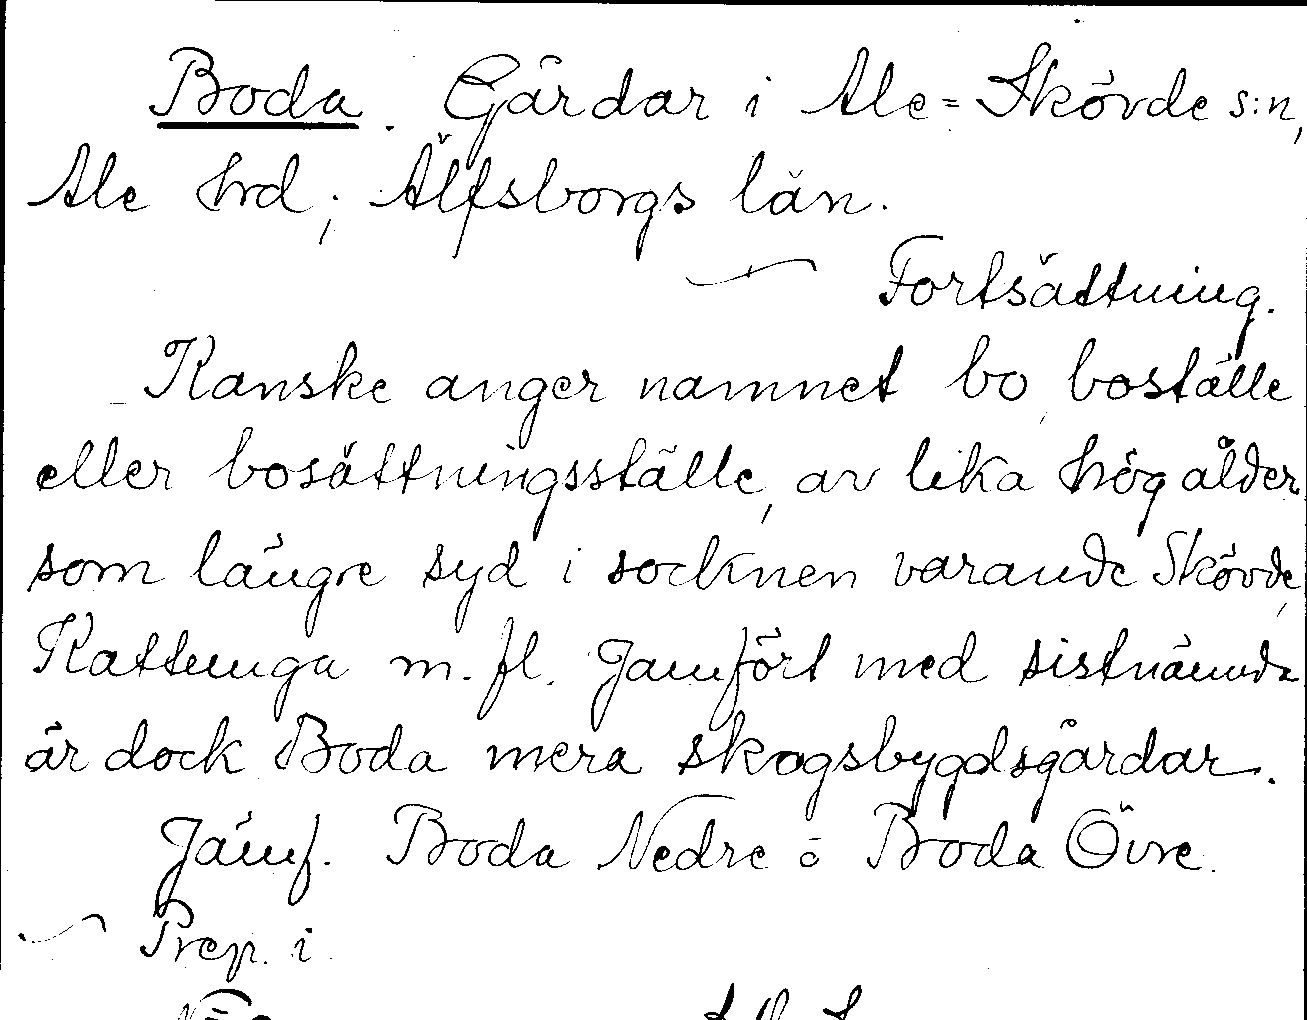 Boda. Gårdar i Ale=Skövde s:n,
Ale hrd; Älfsborgs län.
Fortsättning.
Kanske anger namnet bo, boställe
eller bosättningsställe, av lika hög ålder
som längre syd i socknen varande Skövde,
Kattunga m. fl. Jämfört med sistnämnda
är dock Boda mera skogsbygdsgårdar.
Jämf. Boda Nedre o Boda Övre.
Prep. i